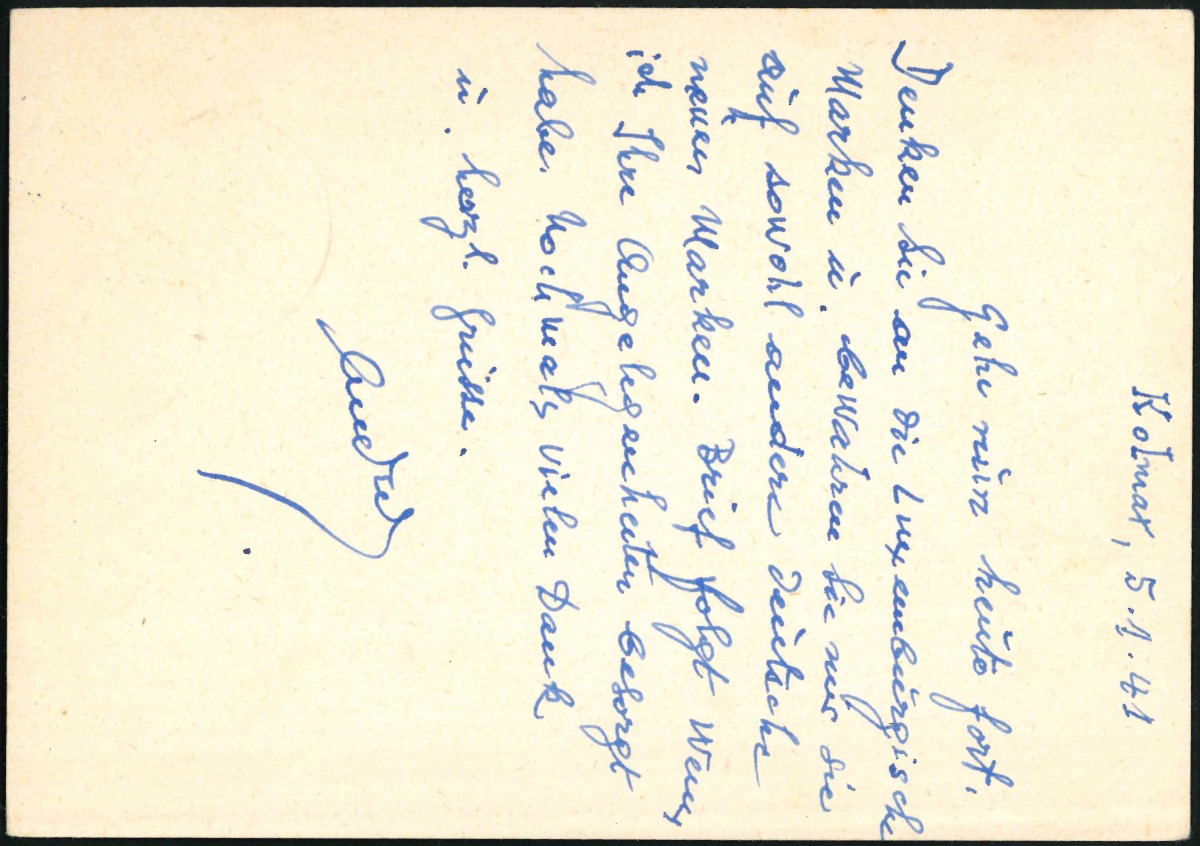 Kolmar, 5.1.41
Gehe nun heute fort.
Denken Sie an die Luxemburgische
Marken u. bewahren Sie mir die
auf sowohl andere deutsche
neuen Marken. Brief folgt wenn
ich Ihre Angelegenheiten besorgt
habe. Nochmals vielen Dank
u. herzl. Grüsse.